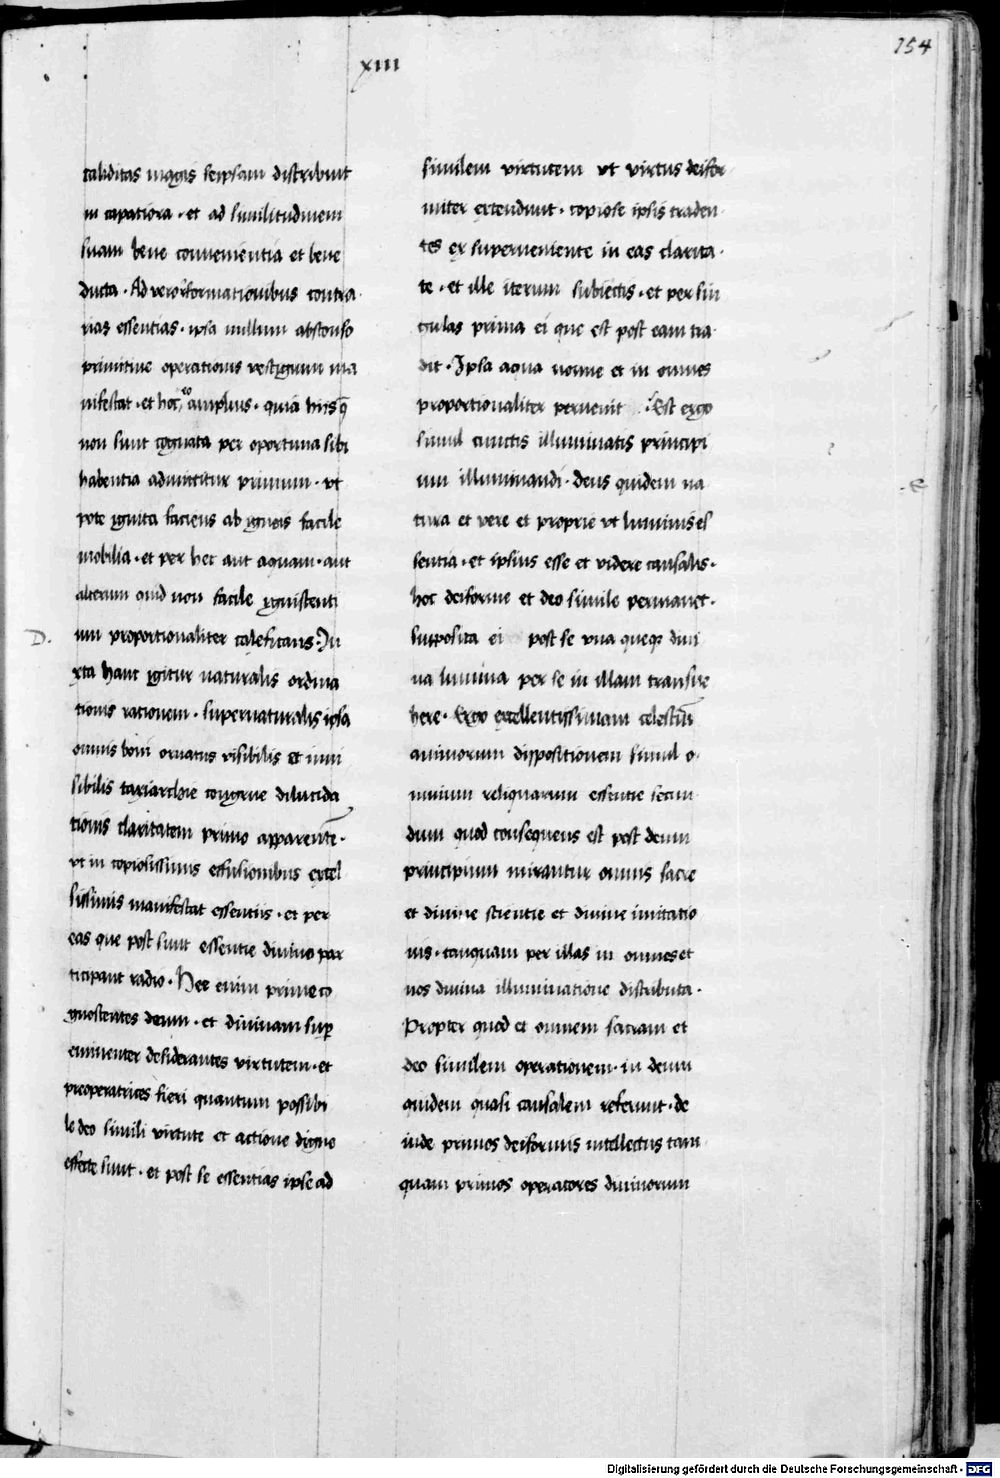 xiii
154
caliditas magis seipsam distribuit
in capatiora · et ad similitudinem
suam bene convenientia et bene
ducta · Ad vero formationibus contra
rias essentias · ipsa nullum absconso
primitive operationis vestigium ma
nifestat · et hoc eo amplius · quia hiis q̄
non sunt cognata per oportuna sibi
habentia admittitur primum · vt
pote ignita faciens ab igneis facile
mobilia · et per hec aut aquam · aut
alterum quid non facile igniscenti
D.
um proportionaliter calefitans · Iu
xta hanc igitur naturalis ordina
tionis rationem · supernaturalis ipsa
omnis boni ornatus visibilis et invi
sibilis taxiarchie congrue dilucida
tionis claritatem primo apparente ·
vt in copiosissimis effusionibus excel
sissimis manifestat essentiis · et per
eas que post sunt essentie divino par
ticipant radio · Hee enim prime co
gnoscentes deum · et divinam sup
eminenter desiderantes virtutem · et
preoperatrices fieri quantum possibi
le deo simili virtute et actione digne
effecte sunt · et post se essentias ipse ad
similem virtutem vt virtus deifor
miter extendunt · copiose ipsis traden
tes ex superveniente in eas clarita ·
te · et ille iterum subiectis · et per sin
gulas prima ei que est post eam tra
dit · Ipsa aqua nonne et in omnes
proportionaliter pervenit · Est ergo
simul cunctis illuminatis principi
um illuminandi · deus quidem na
tura et vere et proprie vt luminis es
sentia · et ipsius esse et videre causalis ·
hoc deiforme et deo simile permanet ·
supposita ei post se vna queque divi
na lumina per se in illam transve
here · Ergo excellentissimam celestium
animorum dispositionem simul o
mnium reliquarum essentie secun
dum quod consequens est post deum
principium mirantur omnis sacre
et divine scientie et divine imitatio
nis · tanquam per illas in omnes et
nos divina illuminatione distributa ·
Propter quod et omnem sacram et
deo similem operationem · in deum
quidem quasi causalem referunt · de
inde primos deiformis intellectus tam
quam primos operatores divinorum
Digitalisierung gefördert durch die Deutsche Forschungsgemeinschaft · DFG